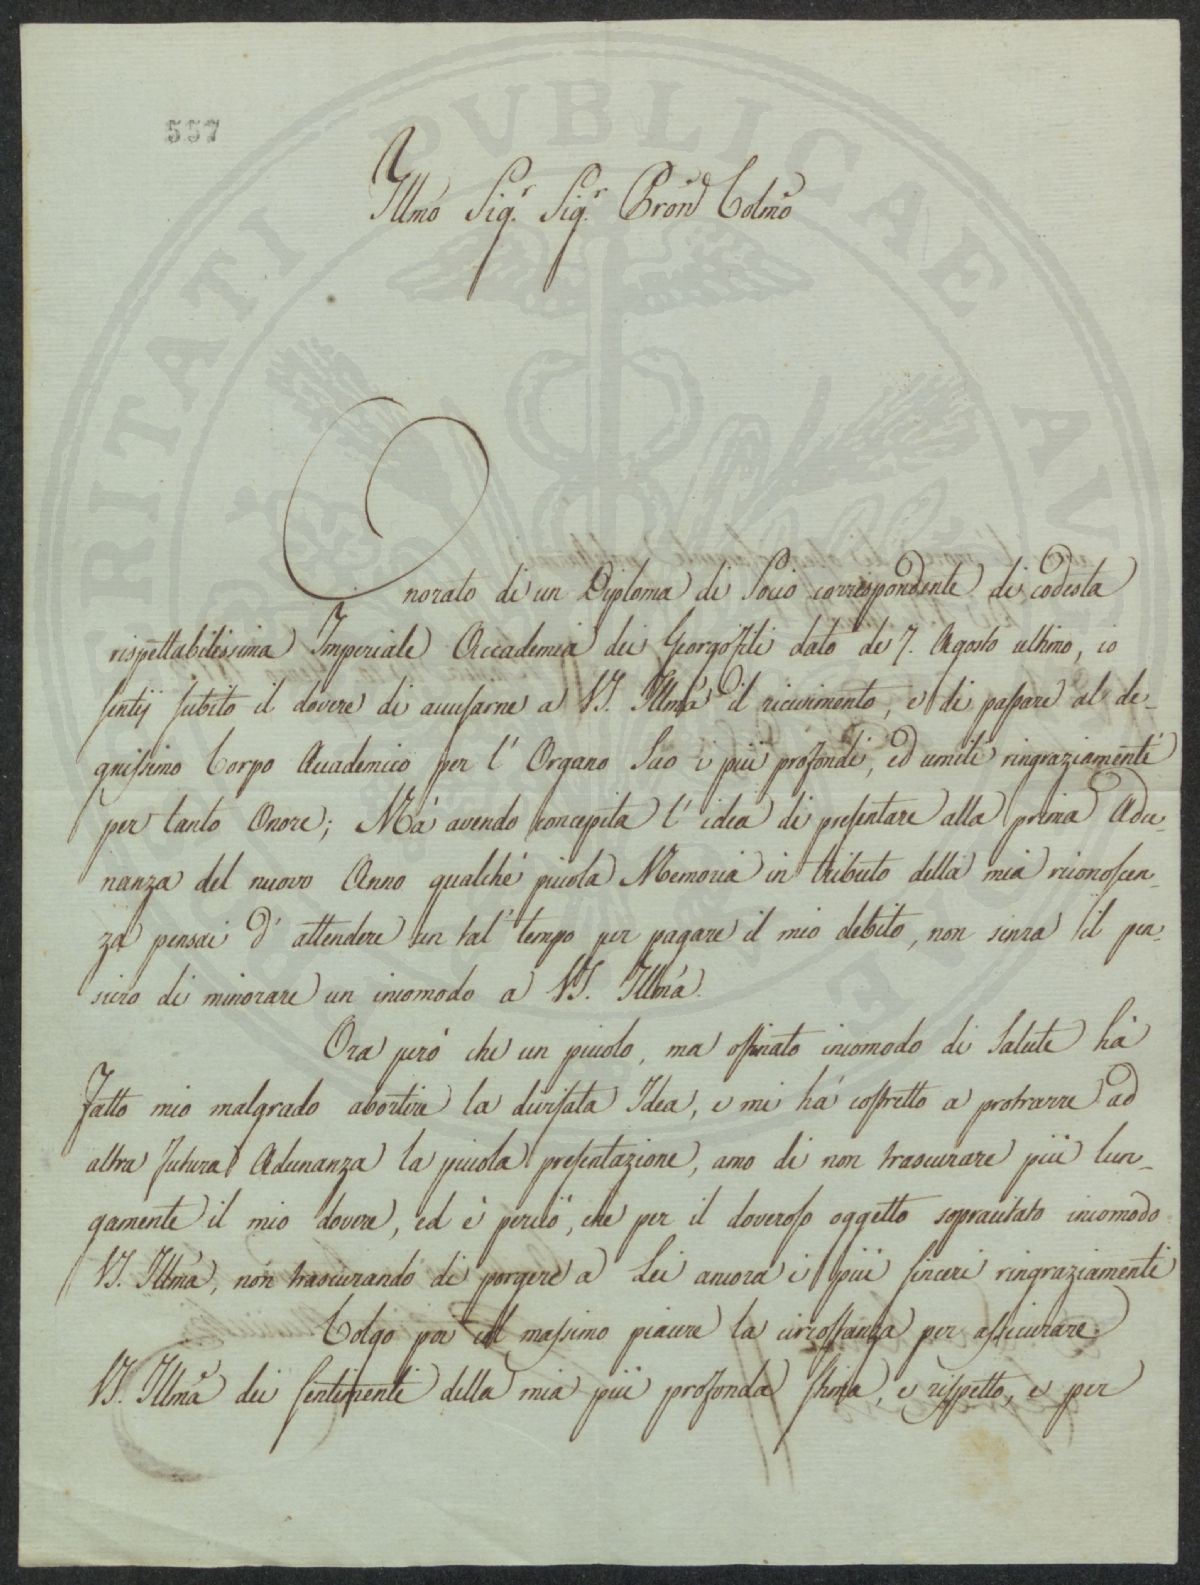 PROSPERITATI PVBLICAE AVGENDAE
557
Illmo Sigr. Sigr. Pron Colmo
Onorato di un Diploma di Socio corrispondente di codesta
rispettabilissima Imperiale Accademia dei Georgofili dato de 7. Agosto ultimo, io
sentij subito il dovere di accusarne a VS. Illma il ricevimento, e di passare al de-
gnissimo Corpo Accademico per l' Organo Suo i più profondi, ed umili ringraziamenti
per tanto Onore; Mà avendo concepita l' idea di presentare alla prima Adu-
nanza del nuovo Anno qualche picola Memoria in tributo della mia riconoscen-
za pensai d' attendere un tal tempo per pagare il mio debito, non senza il pen-
siero di minorare un incomodo a VS. Illma.
Ora però che un piccolo, ma ostinato incomodo di Salute hà
fatto mio malgrado abortire la divisata Idea, e mi hà costretto a protrarre ad
altra futura Adunanza la piccola presentazione, amo di non trascurare più lun-
gamente il mio dovere, ed è perciò, che per il doveroso oggetto sopracitato incomodo
VS. Illma, non trascurando di porgere a Lei ancora i più sinceri ringraziamenti
Colgo poi col massimo piacere la circostanza per assicurare
VS. Illma dei sentimenti della mia più profonda stima, e rispetto, e per